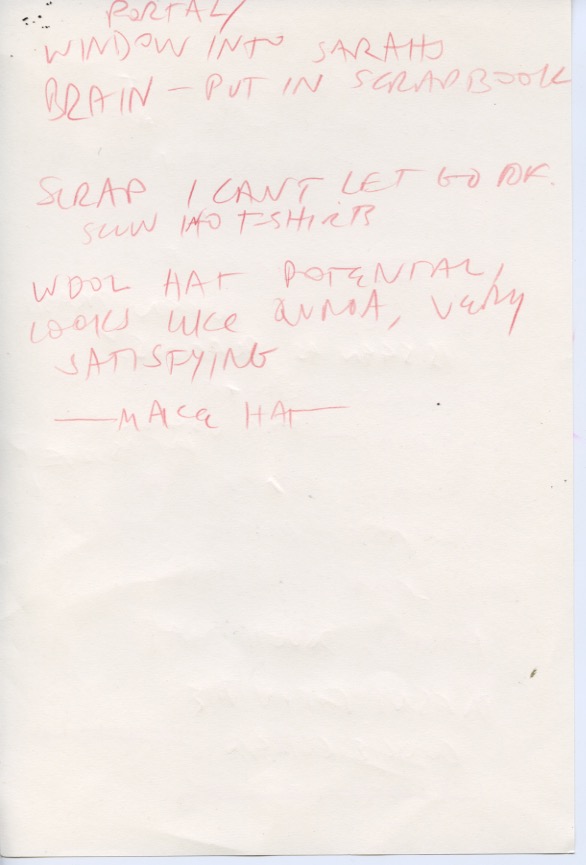 PORTAL/
WINDOW INTO SARAHS
BRAIN - PUT IN SCRAPBOOK
SCRAP I CANT LET GO OF.
SEW INTO T-SHIRTS
WOOL HAT POTENTIAL,
LOOKS LIKE , VERY
SATISFYING
— MAKE HAT —